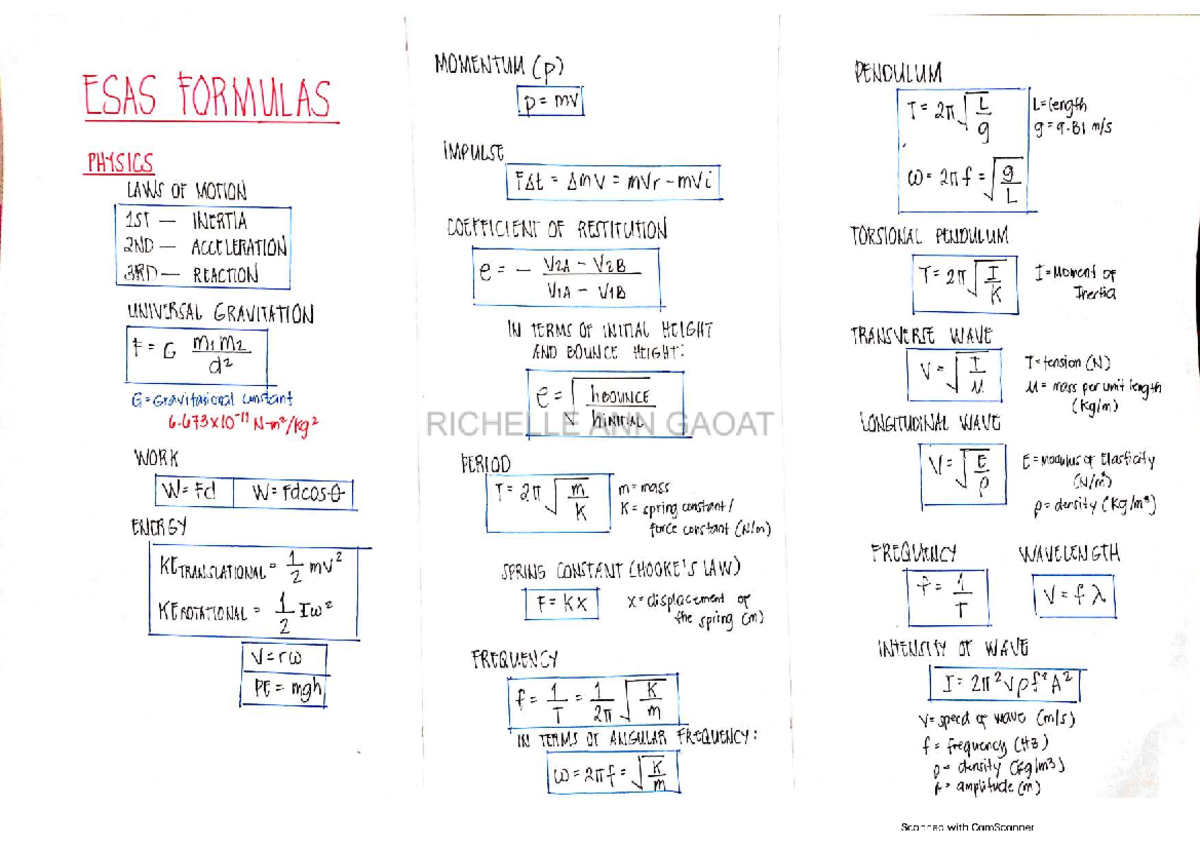 ESAS FORMULAS
PHYSICS
LAWS OF MOTION
1ST — INERTIA
2ND — ACCELERATION
3RD — REACTION
UNIVERSAL GRAVITATION
F = G m1m2 / d²
G = Gravitational constant
6.673x10⁻¹¹ N-m²/kg²
WORK
W = Fd W = Fdcosθ
ENERGY
KE TRANSLATIONAL = 1/2 mv²
KE ROTATIONAL = 1/2 Iω²
V = rω
PE = mgh
MOMENTUM (p)
p = mv
IMPULSE
FΔt = Δmv = mVf - mVi
COEFFICIENT OF RESTITUTION
e = - V2A - V2B / V1A - V1B
IN TERMS OF INITIAL HEIGHT
AND BOUNCE HEIGHT:
e = √(hBOUNCE / hINITIAL)
RICHELLE ANN GAOAT
PERIOD
T = 2π √(m/K)
m = mass
K = spring constant /
force constant (N/m)
SPRING CONSTANT (HOOKE'S LAW)
F = KX
X = displacement of
the spring (m)
FREQUENCY
f = 1/T = 1/2π √(K/m)
IN TERMS OF ANGULAR FREQUENCY:
ω = 2πf = √(K/m)
PENDULUM
T = 2π √(L/g)
L = length
g = 9.81 m/s
ω = 2πf = √(g/L)
TORSIONAL PENDULUM
T = 2π √(I/K)
I = Moment of
Inertia
TRANSVERSE WAVE
V = √(T/μ)
T = tension (N)
μ = mass per unit length
(kg/m)
LONGITUDINAL WAVE
V = √(E/ρ)
E = modulus of Elasticity
(N/m²)
ρ = density (kg/m³)
FREQUENCY WAVELENGTH
f = 1/T V = fλ
INTENSITY OF WAVE
I = 2π²Vρf²A²
V = speed of wave (m/s)
f = frequency (Hz)
ρ = density (kg/m3)
= amplitude (m)
Scanned with CamScanner